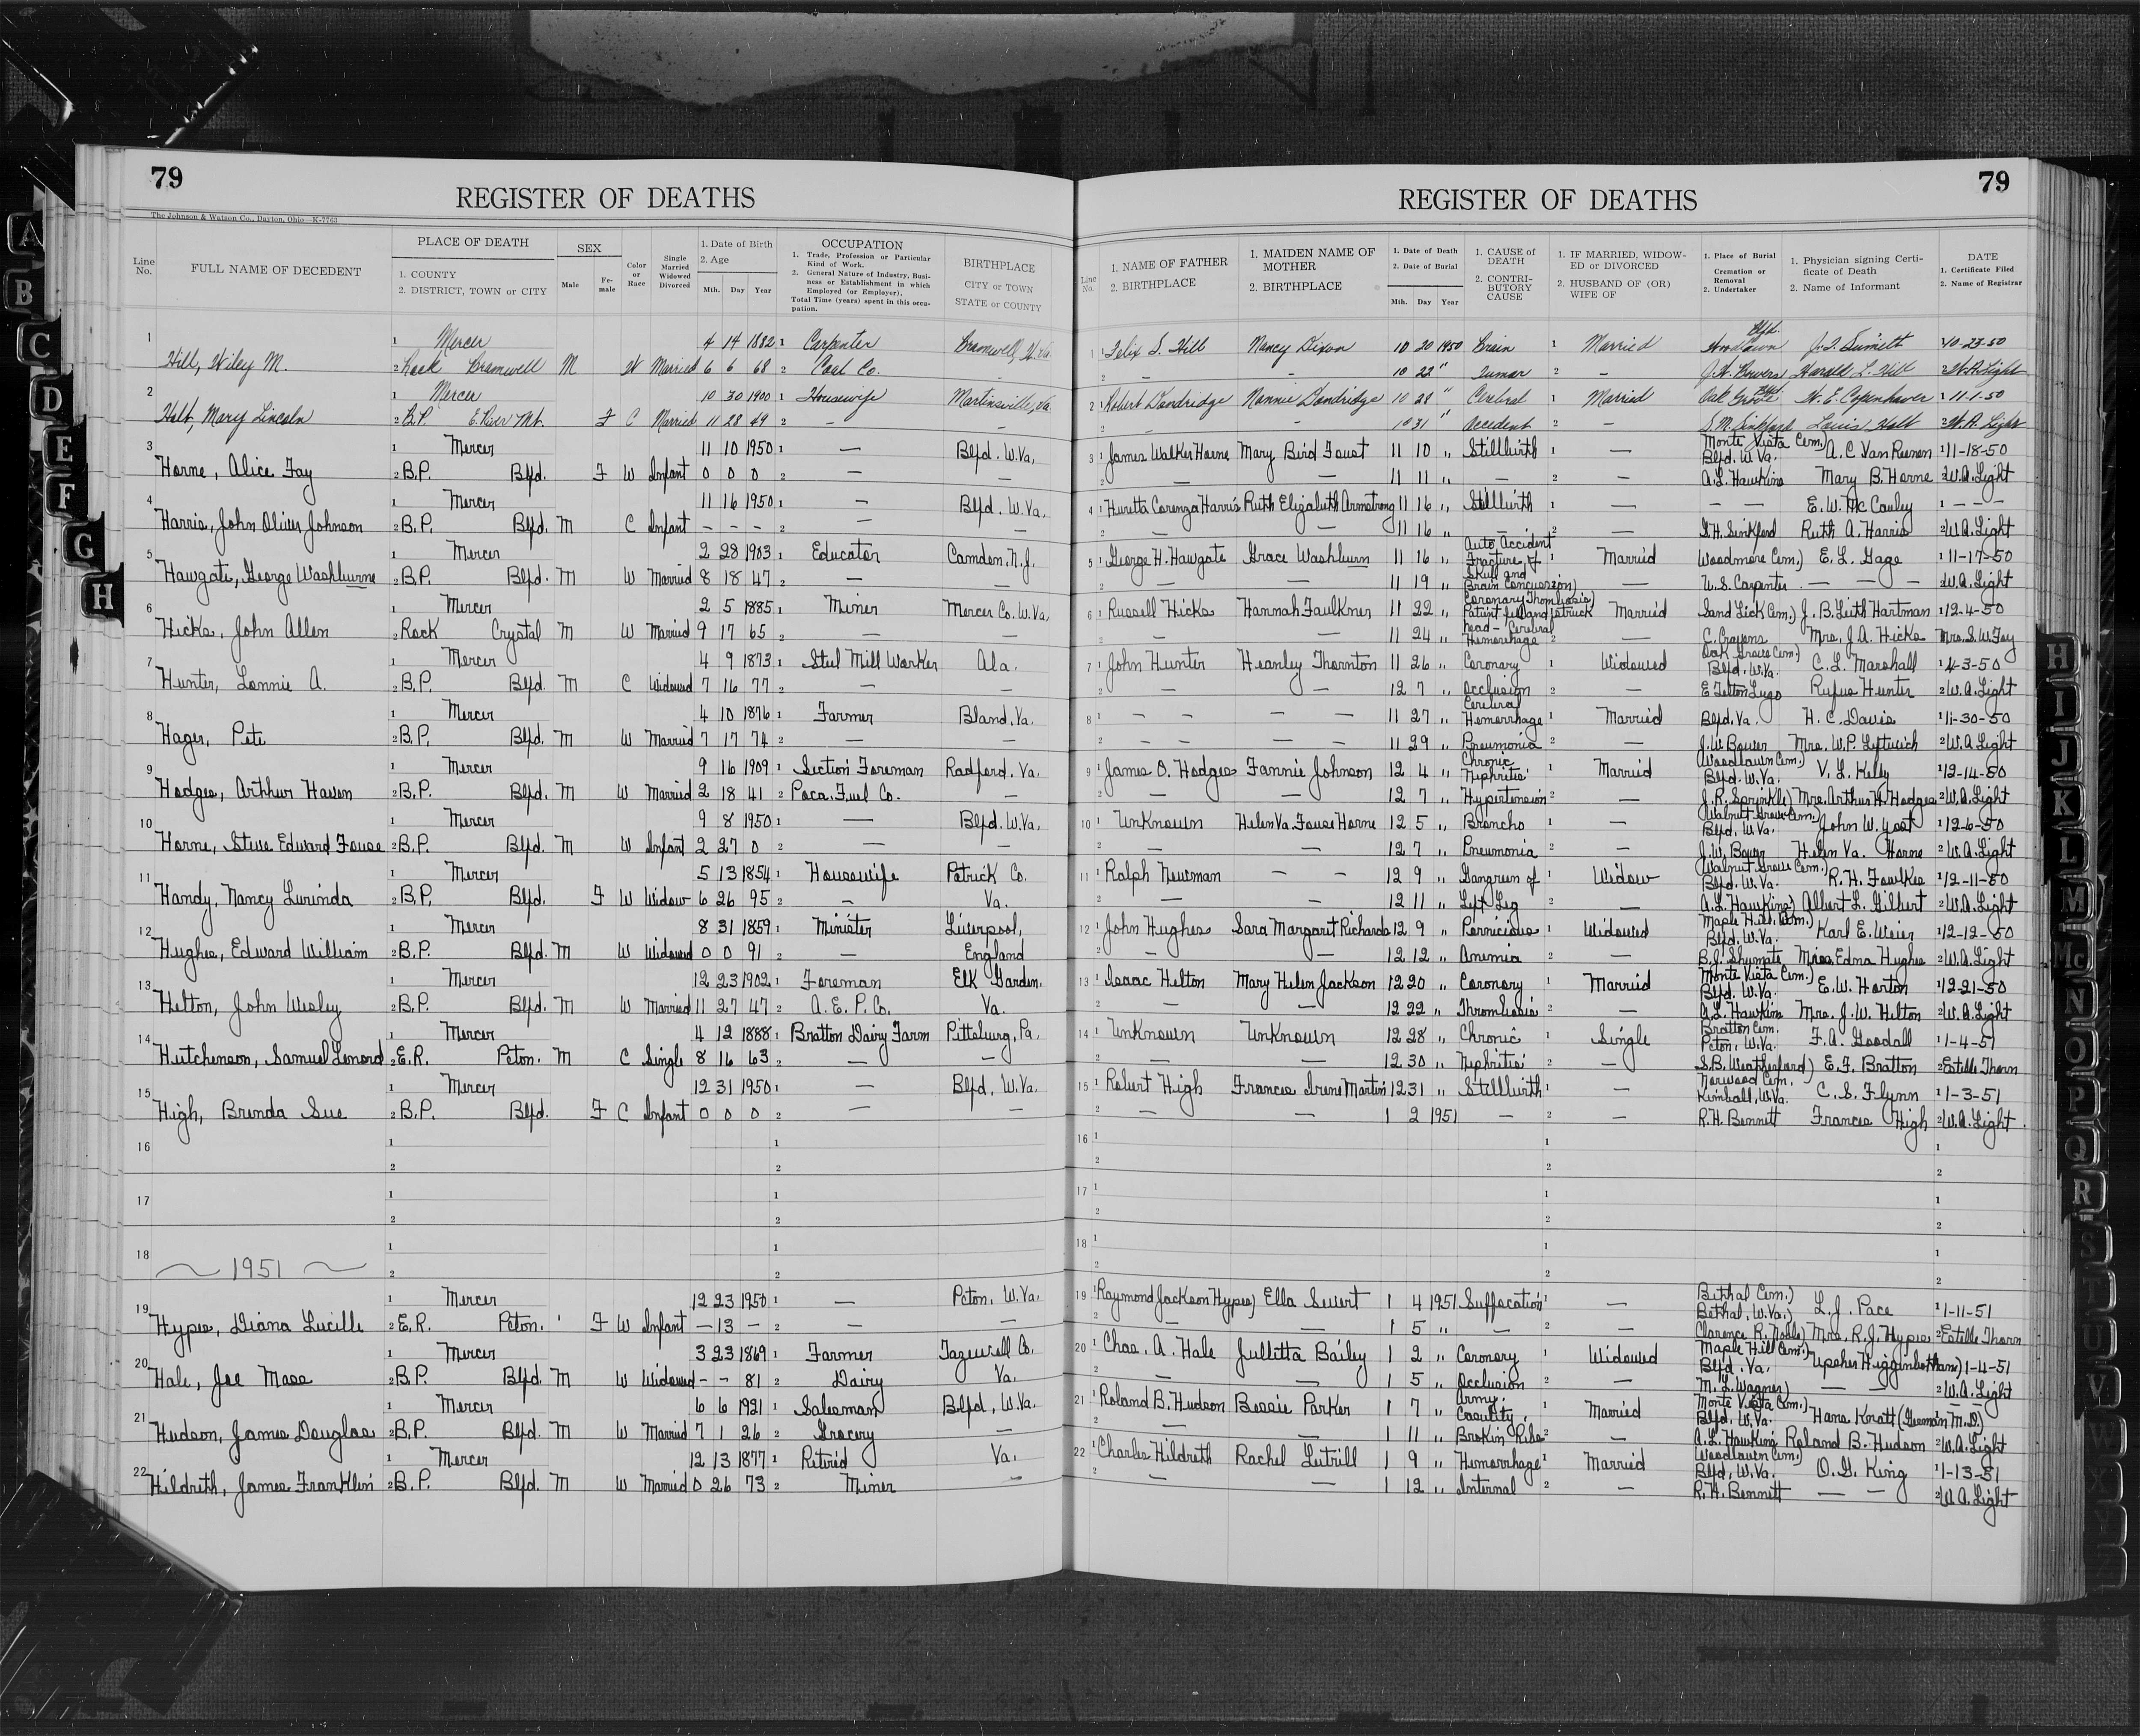 79
REGISTER OF DEATHS
The Johnson & Watson Co., Dayton, Ohio K-7763
Line No. FULL NAME OF DECEDENT PLACE OF DEATH 1. COUNTY 2. DISTRICT, TOWN or CITY SEX Male Female Color or Race Single Married Widowed Divorced 1. Date of Birth 2. Age Mth. Day Year OCCUPATION 1. Trade, Profession or Particular Kind of Work. 2. General Nature of Industry, Business or Establishment in which Employed (or Employer), Total Time (years) spent in this occupation. BIRTHPLACE CITY or TOWN STATE or COUNTY
1 1 Mercer 4 14 1882 1 Carpenter Bramwell, W.Va.
Hill, Wiley M. 2 Rock Bramwell M W Married 6 6 68 2 Coal Co. -
2 1 Mercer 10 30 1900 1 Housewife Martinsville, Va.
Holt, Mary Lincoln 2 B.P. E. River Mt. F C Married 11 28 49 2 - -
3 1 Mercer 11 10 1950 1 — Blfd. W.Va.
Horne, Alice Fay 2 B.P. Blfd. F W Infant 0 0 0 2 — —
4 1 Mercer 11 16 1950 1 — Blfd. W.Va.
Harris, John Oliver Johnson 2 B.P. Blfd. M C Infant - - - 2 — —
5 1 Mercer 2 28 1903 1 Educator Camden, N.J.
Hawgate, George Washburne 2 B.P. Blfd. M W Married 8 18 47 2 — —
6 1 Mercer 2 5 1885 1 Miner Mercer Co. W.Va.
Hicks, John Allen 2 Rock Crystal M W Married 9 17 65 2 — —
7 1 Mercer 4 9 1873 1 Steel Mill Worker Ala.
Hunter, Lonnie A. 2 B.P. Blfd. M C Widowed 7 16 77 2 — —
8 1 Mercer 4 10 1876 1 Farmer Bland, Va.
Hager, Pete 2 B.P. Blfd. M W Married 7 17 74 2 — —
9 1 Mercer 9 16 1909 1 Section Foreman Radford, Va.
Hodges, Arthur Haven 2 B.P. Blfd. M W Married 2 18 41 2 Poca. Fuel Co. —
10 1 Mercer 9 8 1950 1 — Blfd. W.Va.
Horne, Steve Edward Fouse 2 B.P. Blfd. M W Infant 2 27 0 2 — —
11 1 Mercer 5 13 1854 1 Housewife Patrick Co.
Handy, Nancy Lurinda 2 B.P. Blfd. F W Widow 6 26 95 2 — Va.
12 1 Mercer 8 31 1859 1 Minister Liverpool,
Hughes, Edward William 2 B.P. Blfd. M W Widowed 0 0 91 2 — England
13 1 Mercer 12 23 1902 1 Foreman Elk Garden,
Helton, John Wesley 2 B.P. Blfd. M W Married 11 27 47 2 A. E. P. Co. Va.
14 1 Mercer 4 12 1888 1 Bratton Dairy Farm Pittsburg, Pa.
Hutchenson, Samuel Lenord 2 E.R. Pcton. M C Single 8 16 63 2 — —
15 1 Mercer 12 31 1950 1 — Blfd, W.Va.
High, Brenda Sue 2 B.P. Blfd. F C Infant 0 0 0 2 — —
16 1 1
2 2
17 1 1
2 2
18 1 1
~ 1951 ~ 2 2
19 1 Mercer 12 23 1950 1 — Pcton, W.Va.
Hypes, Diana Lucille 2 E.R. Pcton. F W Infant — 13 — 2 — —
20 1 Mercer 3 23 1869 1 Farmer Tazewell Co.
Hale, Joe Mase 2 B.P. Blfd. M W Widowed - - 81 2 Dairy Va.
21 1 Mercer 6 6 1921 1 Salesman Blfd, W.Va.
Hudson, James Douglas 2 B.P. Blfd. M W Married 7 1 26 2 Grocery —
22 1 Mercer 12 13 1877 1 Retired Va.
Hildreth, James Franklin 2 B.P. Blfd. M W Married 0 26 73 2 Miner —
79
REGISTER OF DEATHS
Line No. 1. NAME OF FATHER 2. BIRTHPLACE 1. MAIDEN NAME OF MOTHER 2. BIRTHPLACE 1. Date of Death 2. Date of Burial Mth. Day Year 1. CAUSE of DEATH 2. CONTRIBUTORY CAUSE 1. IF MARRIED, WIDOWED or DIVORCED 2. HUSBAND OF (OR) WIFE OF 1. Place of Burial Cremation or Removal 2. Undertaker 1. Physician signing Certificate of Death 2. Name of Informant DATE 1. Certificate Filed 2. Name of Registrar
1 1 Felix S. Hill Nancy Dixon 10 20 1950 Brain 1 Married Woodlawn Blfd. 1 10-23-50
2 - - 10 22 " Tumor 2 - J.W. Bowers Harold L. Hill 2 W.A. Light
2 1 Robert Dandridge Nannie Dandridge 10 28 " Cerebral 1 Married Oak Grove Blfd. W. E. Copenhaver 1 11-1-50
2 - - 10 31 " Accident 2 - Louis Holt 2 W.A. Light
3 1 James Walker Horne Mary Bird Foust 11 10 " Stillbirth 1 — Monte Vista Cem.) Blfd. W.Va. A. C. Van Reenen 1 11-18-50
2 — — 11 11 " — 2 — A.L. Hawkins Mary B. Horne 2 W.A. Light
4 1 Huretta Corenza Harris Ruth Elizabeth Armstrong 11 16 " Stillbirth 1 — — — E. W. McCauley 1 — —
2 — — 11 16 " — 2 — Ruth A. Harris 2 W.A. Light
5 1 George H. Hawgate Grace Washburn 11 16 " Auto Accident Fracture of 1 Married Woodmere Cem.) E. L. Gage 1 11-17-50
2 — — 11 19 " Skull and Brain Concussion) 2 — W.S. Carpenter — — — 2 W.A. Light
6 1 Russell Hicks Hannah Faulkner 11 22 " Coronary Thombosis) Patient fell and struck Married Sand Lick Cem.) J. B. Leith Hartman 1 12-4-50
2 — — 11 24 " head - Cerebral Hemorrhage 2 — C. Cravens Mrs. J.A. Hicks Mrs. S.W. Fay
7 1 John Hunter Heanley Thornton 11 26 " Coronary 1 Widowed Oak Grove Cem.) Blfd, W.Va. C. L. Marshall
2 — — 12 7 " Occlusion 2 — E Felton Lugo Rufus Hunter 2 W.A. Light
8 1 — — — — 11 27 " Cerebral Hemorrhage 1 Married Blfd. Va. H. C. Davis 1 11-30-50
2 — — — — 11 29 " Pneumonia 2 — J.W. Bower Mrs. W.P. Leftwich 2 W.A. Light
9 1 James O. Hodges Fannie Johnson 12 4 " Chronic Nephritis 1 Married Woodlawn Cem.) Blfd. W.Va. V. L. Kelly 1 12-14-50
2 — — 12 7 " Hypertension 2 — J. R. Sprinkle) Mrs. Arthur H. Hodges 2 W.A. Light
10 1 Unknown Helen Va. Fouse Horne 12 5 " Broncho 1 — Walnut Grove Cem.) Blfd, W.Va. John W. Yost 1 12-6-50
2 — — 12 7 " Pneumonia 2 — J.W. Bower Helen Va. Horne 2 W.A. Light
11 1 Ralph Newman — — 12 9 " Gangreen of 1 Widow Walnut Grove Cem.) Blfd. W.Va. R. H. Fowlkes 1 12-11-50
2 — — 12 11 " Left Leg 2 — A.L. Hawkins) Albert L. Gilbert 2 W.A. Light
12 1 John Hughes Sara Margaret Richards 12 9 " Pernicious 1 Widowed Maple Hill Cem.) Blfd. W.Va. Karl E. Weier 1 12-12-50
2 — — 12 12 " Anemia 2 — B.J. Shumate Miss Edna Hughes 2 W.A. Light
13 1 Isaac Helton Mary Helen Jackson 12 20 " Coronary 1 Married Monte Vista Cem.) Blfd. W.Va. E. W. Horton 1 12-21-50
2 — — 12 22 " Thrombosis 2 — A.L. Hawkins Mrs. J.W. Helton 2 W.A. Light
14 1 Unknown Unknown 12 28 " Chronic 1 Single Bratton Cem. Pcton, W.Va. F. A. Goodall 1 1-4-51
2 — — 12 30 " Nephritis 2 — S.B. Weatherford) E. F. Bratton 2 Estelle Thorn
15 1 Robert High Frances Irene Martin 12 31 " Stillbirth 1 — Norwood Cem. Kimball, W.Va. C. S. Flynn 1 1-3-51
2 — — 1 2 1951 — 2 — R.H. Bennett Frances High 2 W.A. Light
16 1 1 1
2 2 2
17 1 1 1
2 2 2
18 1 1 1
2 2 2
19 1 Raymond Jackson Hypes) Ella Sewert 1 4 1951 Suffocation 1 — Bethal Cem.) Bethal, W.Va.) L. J. Pace 1 1-11-51
2 — — 1 5 " — 2 — Clarence R. Noble) Mrs. R.J. Hypes 2 Estelle Thorn
20 1 Chas. A. Hale Jullitta Bailey 1 2 " Coronary 1 Widowed Maple Hill Cem.) Blfd. Va. Upsher Higginbotham) 1-4-51
2 — — 1 5 " Occlusion 2 — M. L. Wagner) — — 2 W.A. Light
21 1 Roland B. Hudson Bessie Parker 1 7 " Army Casulity 1 Married Monte Vista Cem.) Blfd. W.Va. Hans Knatt (German M.D.)
2 — — 1 11 " Broken Ribs 2 — A.L. Hawkins Roland B. Hudson 2 W.A. Light
22 1 Charles Hildreth Rachel Lutrill 1 9 " Hemorrhage 1 Married Woodlawn Cem.) Blfd, W.Va. O. G. King 1 1-13-51
2 — — 1 12 " Internal 2 — R.H. Bennett — — 2 W.A. Light
A
B
C
D
E
F
G
H
H
I
J
K
L
M
Mc
N
O
P
Q
R
S
T
U
V
W
X
Y
Z